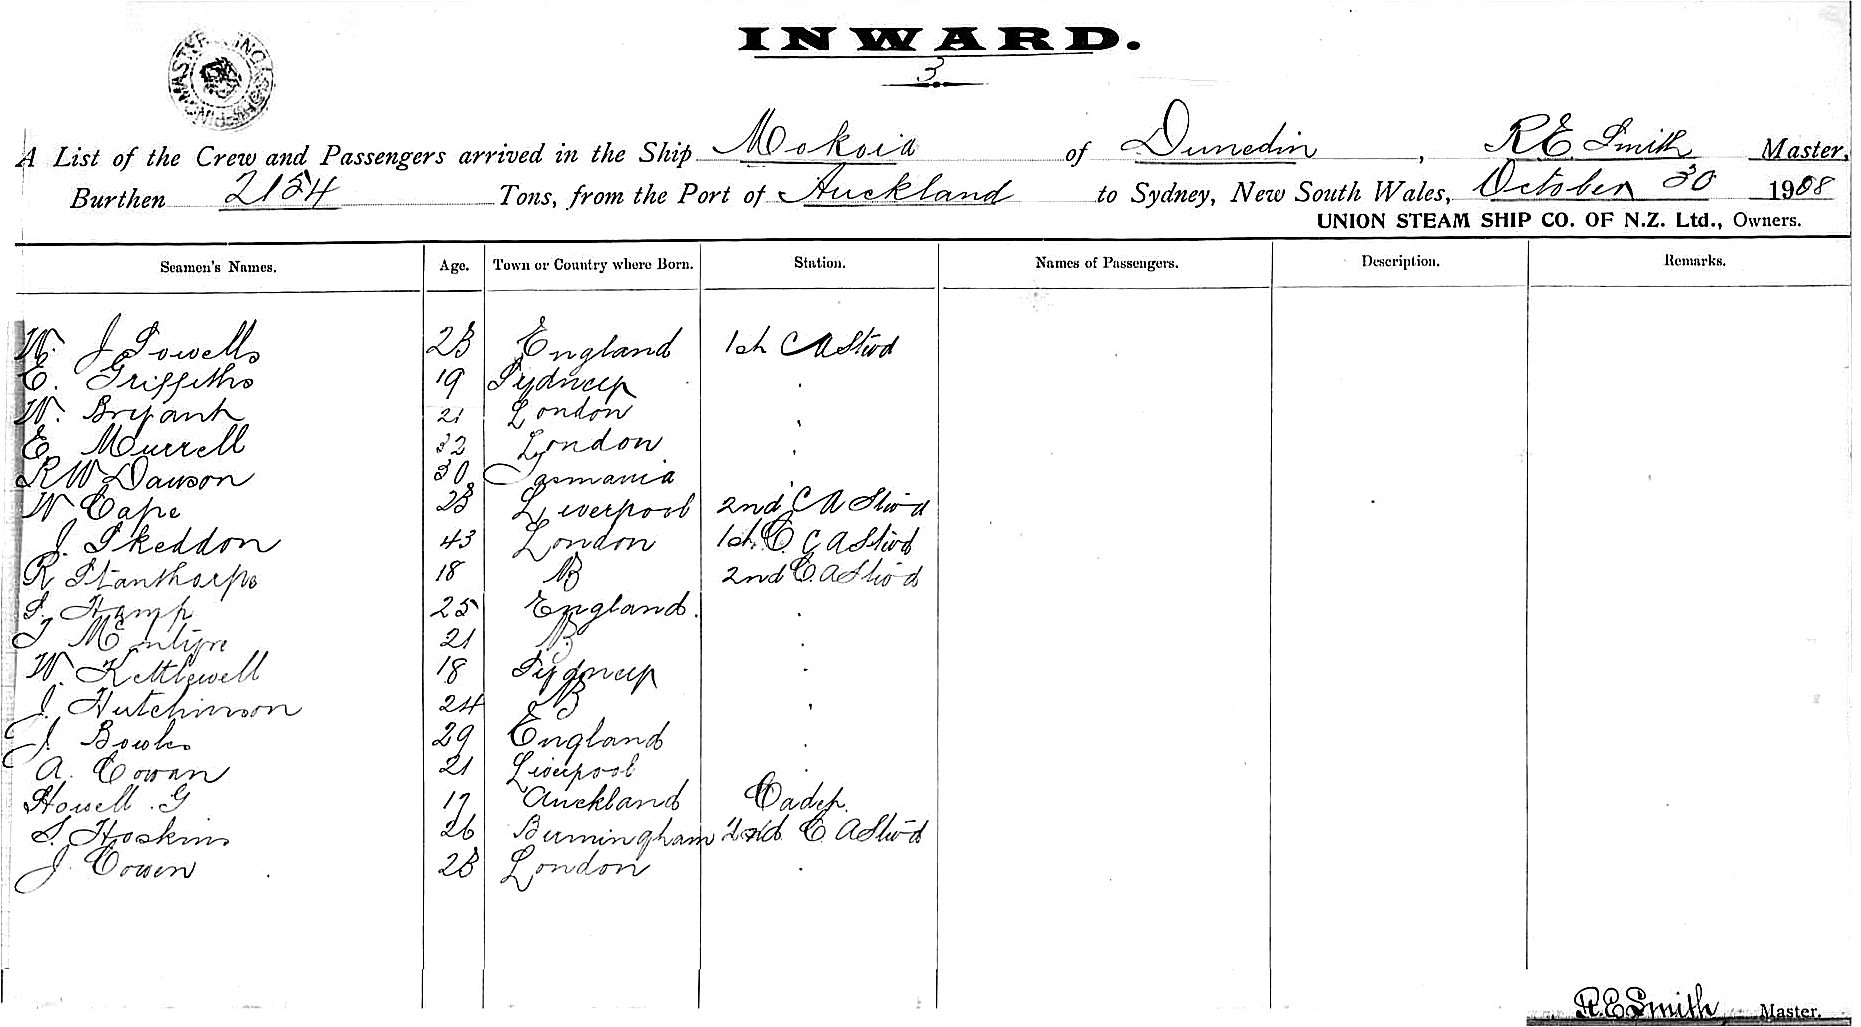 INWARD.
3
A List of the Crew and Passengers arrived in the Ship Mokoia of Dunedin, R E. Smith Master,
Burthen 2154 Tons, from the Port of Auckland to Sydney, New South Wales, October 30 1908
UNION STEAM SHIP CO. OF N.Z. Ltd., Owners.
Seamen's Names. Age. Town or Country where Born. Station. Names of Passengers. Description. Remarks.
W. J 28 England 1st C A Stwd
E. Griffiths 19 Sydney
W. Bryant 21 London
E Murrell 32 London
R W Dawson 30 Tasmania
W Cape 28 Liverpool 2nd C A Stwd
J. Skeddon 43 London 1st. C. C A Stwd
R Stanthorpe 18 2nd C. A Stwd
S. Hamp 25 England.
J McIntyre 21
W. Kettlewell 18 Sydney
J. Hutchinson 24
J. Bowles 29 England
A. Cowan 21 Liverpool
Howell. G 17 Auckland Cadet.
S. Hoskins 26 Birmingham 2nd C. A Stwd
J. Cowen 28 London
R.E Smith Master.